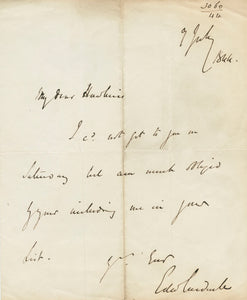 3060
44
9 July
1844.
My dear Hawkins
I cd. not get to you on
Saturday but am much obliged
by your including me in your
List.
Yrs Ever